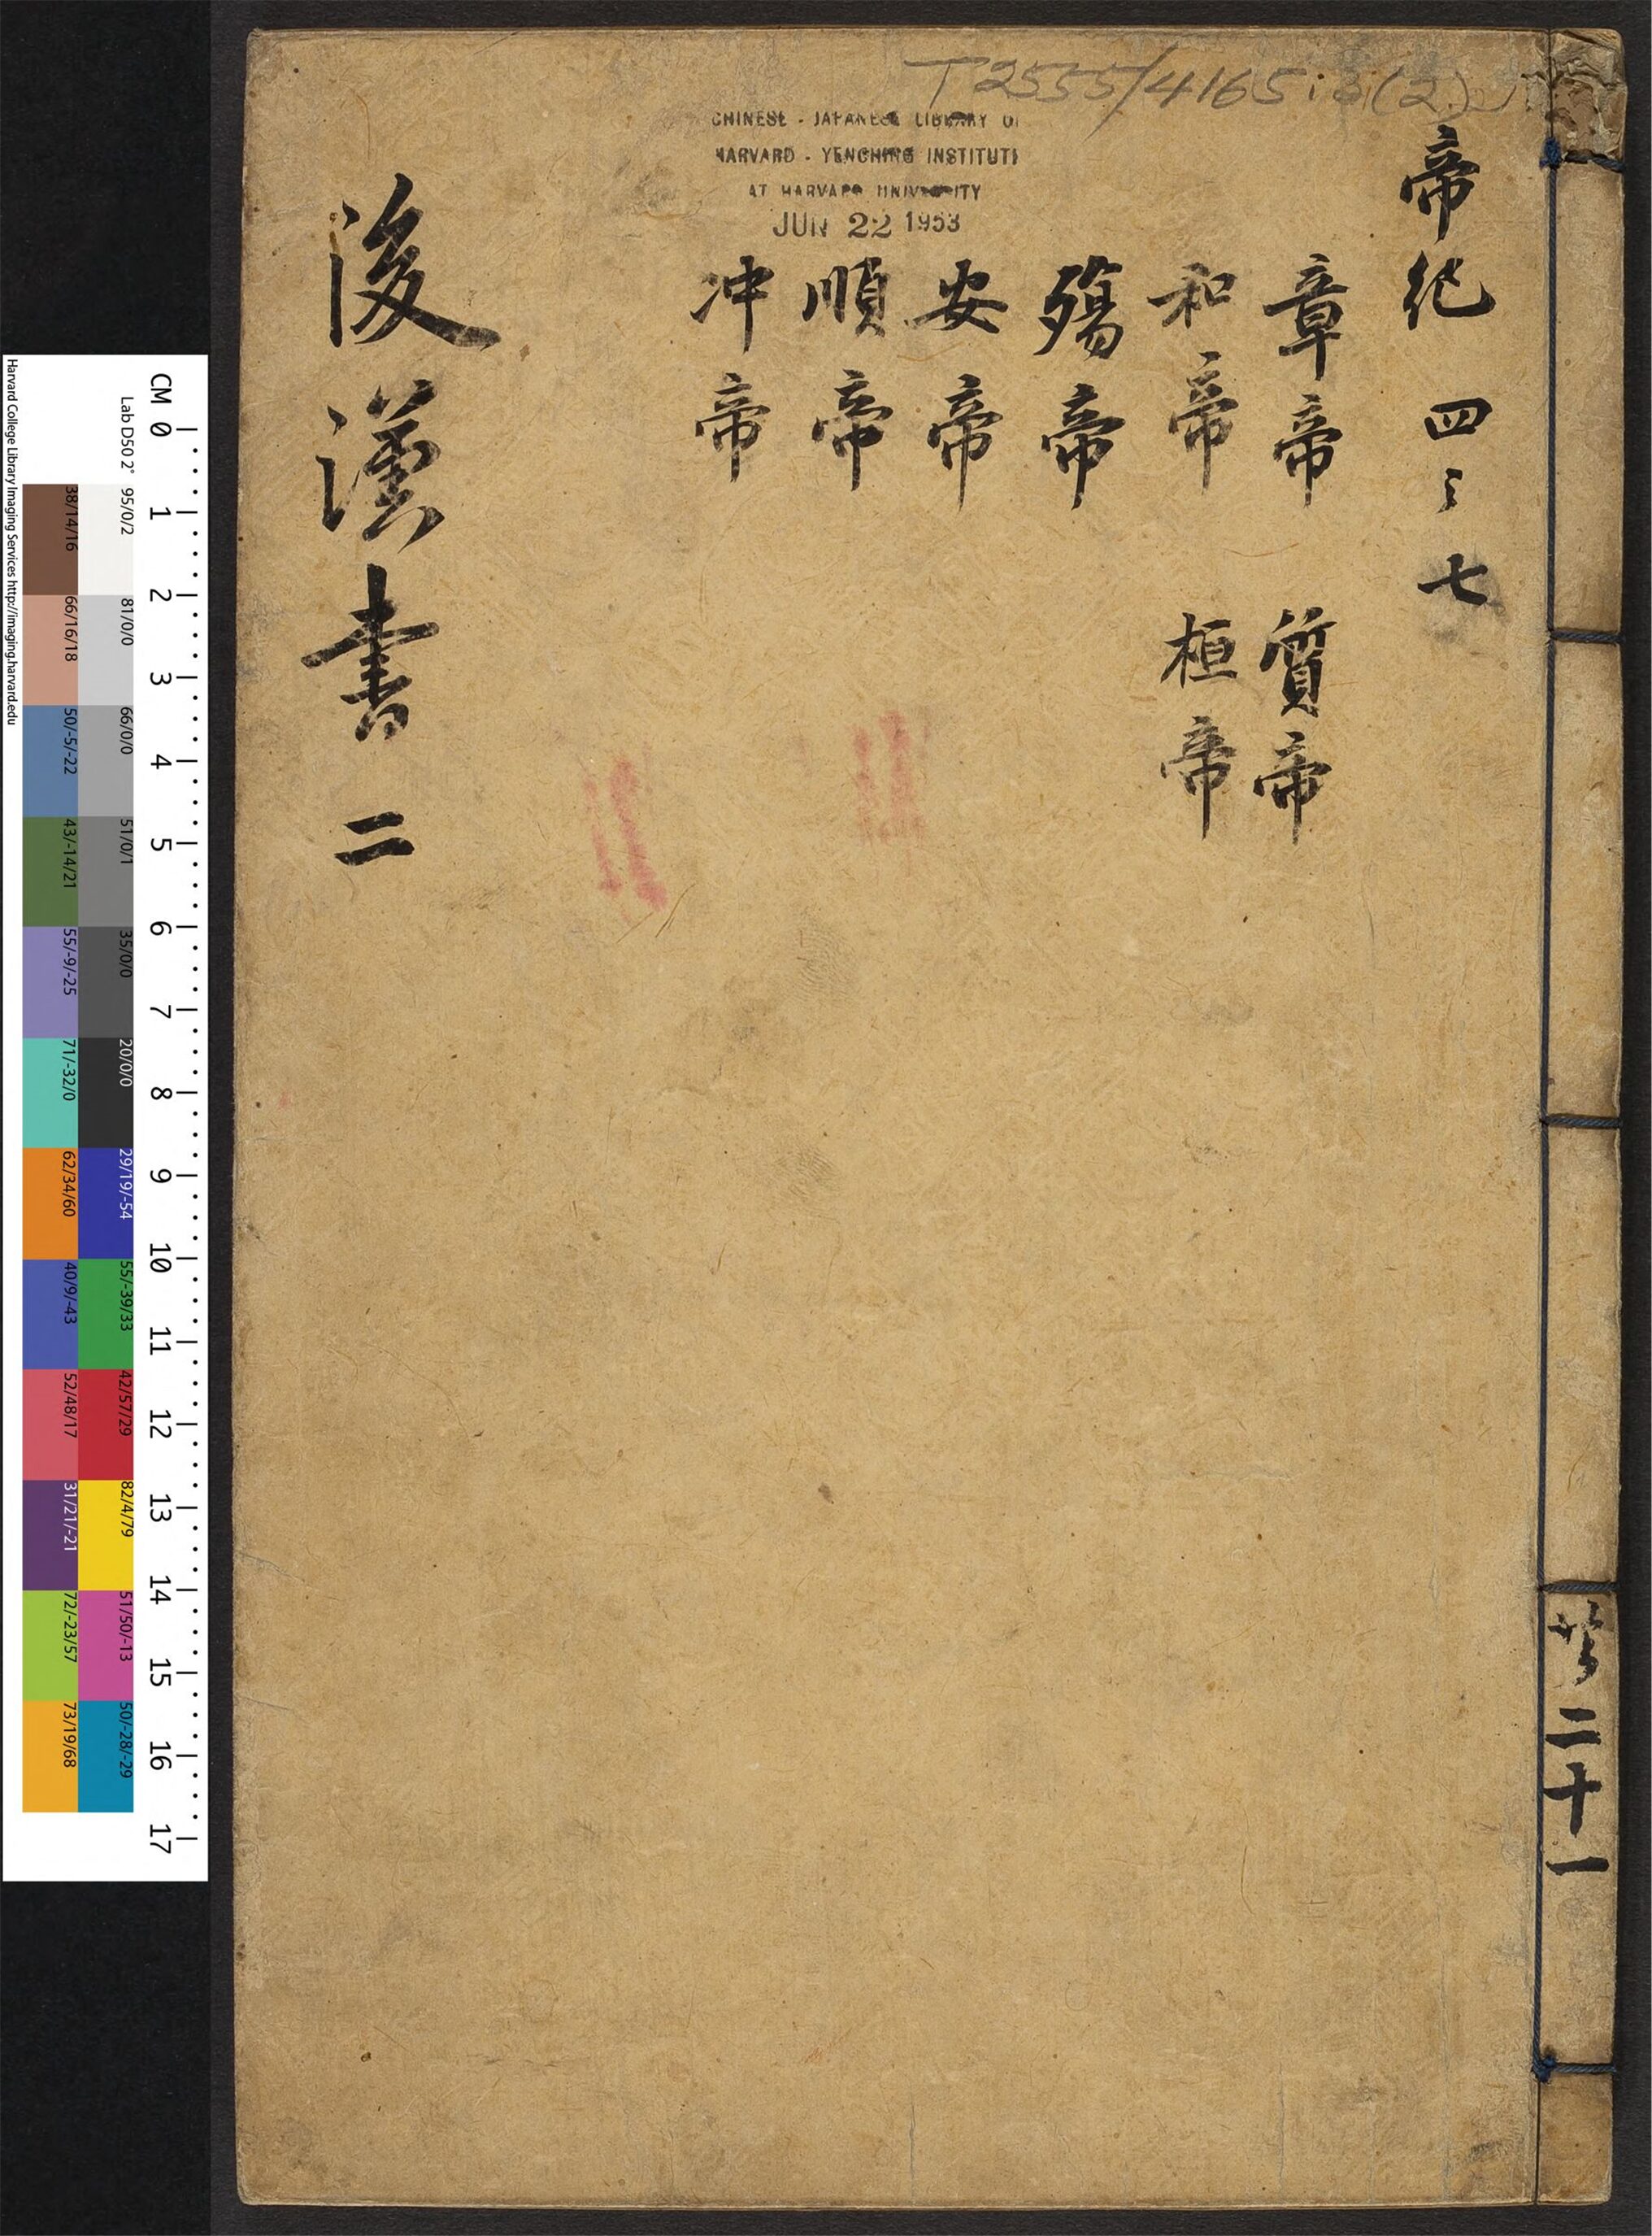 T2555/4165:3(2)
CHINESE - JAPANESE LIBRARY OF
HARVARD - YENCHING INSTITUTE
AT HARVARD UNIVERSITY
JUN 22 1953
帝紀 四之七
章帝 質帝
和帝 桓帝
殤帝
安帝
順帝
冲帝
後漢書 二
二十一
CM 0 1 2 3 4 5 6 7 8 9 10 11 12 13 14 15 16 17
Lab D50 2° 95/0/2 81/0/0 66/0/0 51/0/1 35/0/0 20/0/0 29/19/-54 55/-39/33 42/57/29 82/4/79 51/50/-13 50/-28/-29
38/14/16 66/16/18 50/-5/-22 43/-14/21 55/-9/-25 71/-32/0 62/34/60 40/9/-43 52/48/17 31/21/-21 72/-23/57 73/19/68
Harvard College Library Imaging Services http://imaging.harvard.edu